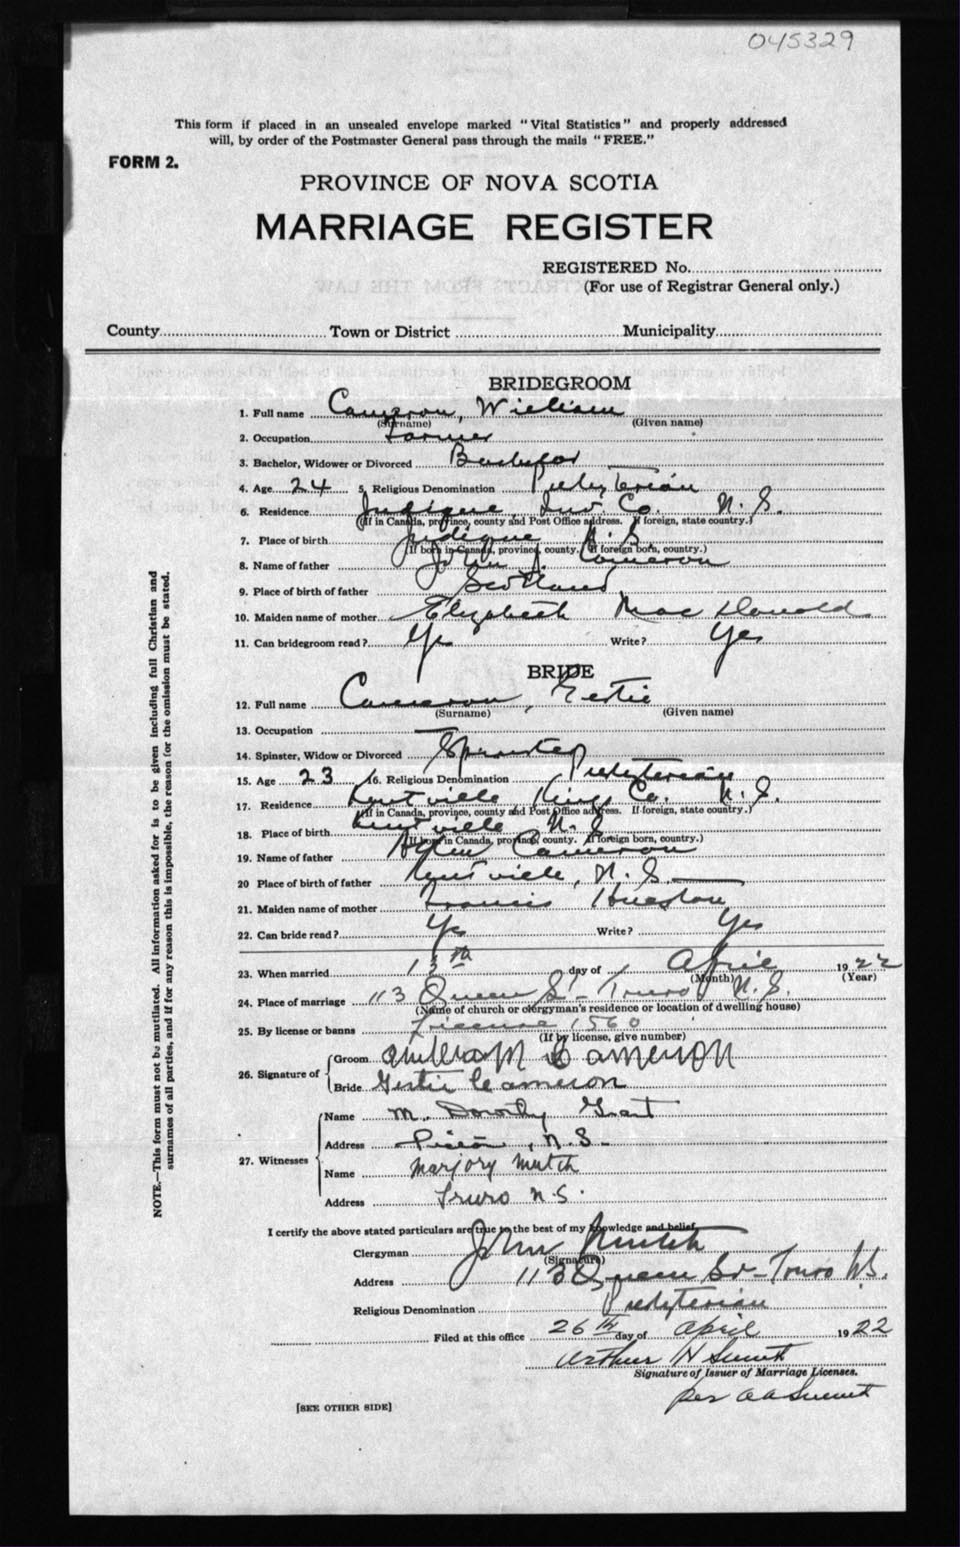 045329
This form if placed in an unsealed envelope marked "Vital Statistics" and properly addressed
will, by order of the Postmaster General pass through the mails "FREE."
FORM 2.
PROVINCE OF NOVA SCOTIA
MARRIAGE REGISTER
REGISTERED No.
(For use of Registrar General only.)
County Town or District Municipality
BRIDEGROOM
1. Full name Cameron, William
(Surname) (Given name)
2. Occupation Farmer
3. Bachelor, Widower or Divorced Bachelor
4. Age 24 5. Religious Denomination Presbyterian
6. Residence Judique, Inv. Co. N. S.
(If in Canada, province, county and Post Office address. If foreign, state country.)
7. Place of birth Judique N. S.
(If born in Canada, province, county. If foreign born, country.)
8. Name of father John J. Cameron
9. Place of birth of father Scotland
10. Maiden name of mother Elizabeth MacDonald
11. Can bridegroom read? Yes Write? Yes
BRIDE
12. Full name Cameron, Gertie
(Surname) (Given name)
13. Occupation
14. Spinster, Widow or Divorced Spinster
15. Age 23 16. Religious Denomination Presbyterian
17. Residence Kentville Kings Co. N. S.
(If in Canada, province, county and Post Office address. If foreign, state country.)
18. Place of birth Kentville N. S.
(If born in Canada, province, county. If foreign born, country.)
19. Name of father Cameron
20 Place of birth of father Kentville, N. S.
21. Maiden name of mother Francis
22. Can bride read? Yes Write? Yes
23. When married 13th day of April 1922
(Month) (Year)
24. Place of marriage 113 Queen St- Truro N. S.
(Name of church or clergyman's residence or location of dwelling house)
25. By license or banns License 1560
(If by license, give number)
26. Signature of Groom Cameron
Bride Gertie Cameron
27. Witnesses Name M. Dorothy Grant
Address Pictou, N. S.
Name Marjory Mutch
Address Truro N. S.
I certify the above stated particulars are true to the best of my knowledge and belief.
Clergyman John Mutch
(Signature)
Address 113 Queen St- Truro N.S.
Religious Denomination Presbyterian
Filed at this office 26th day of April 1922
Arthur H Smith
Signature of Issuer of Marriage Licenses.
per
[SEE OTHER SIDE]
NOTE.—This form must not be mutilated. All information asked for is to be given including full Christian and
surnames of all parties, and if for any reason this is impossible, the reason for the omission must be stated.